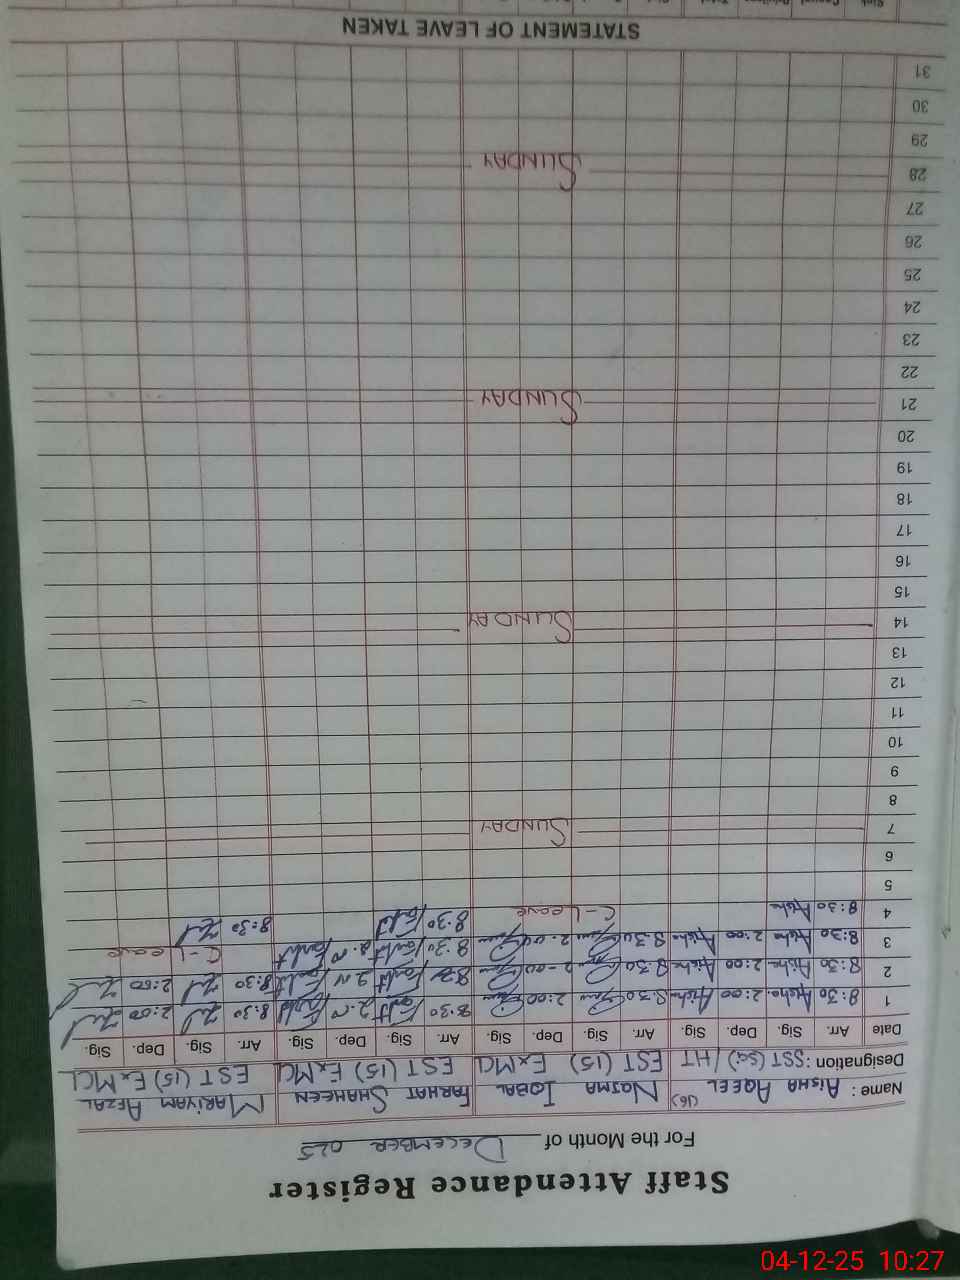 Staff Attendance Register
For the Month of DECEMBER 025
Name: AISHA AQEEL (16) NAJMA IQBAL FARHAT SHAHEEN MARIYAM AFZAL
Designation: SST (Sci) / HT EST (15) ExMCL EST (15) ExMCL EST (15) ExMCL
Date Arr. Sig. Dep. Sig. Arr. Sig. Dep. Sig. Arr. Sig. Dep. Sig. Arr. Sig. Dep. Sig.
1 8:30 Aisha 2:00 Aisha 8:30 2:00 8:30 8:30 2:00
2 8:30 Aisha 2:00 Aisha 8:30 2-00 8:30 2:00
3 8:30 Aisha 2:00 Aisha 8:30 2:00 8:30 C-Leave
4 8:30 Aisha C-Leave 8:30 8:30
5
6
7 SUNDAY
8
9
10
11
12
13
14 SUNDAY
15
16
17
18
19
20
21 SUNDAY
22
23
24
25
26
27
28 SUNDAY
29
30
31
STATEMENT OF LEAVE TAKEN
04-12-25 10:27